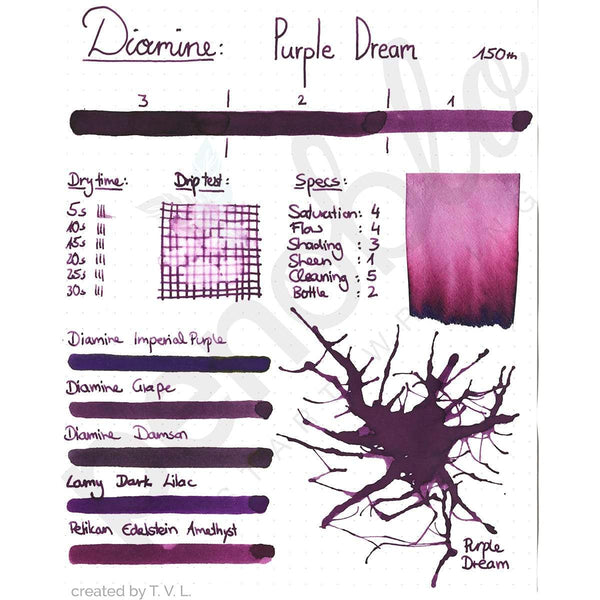 Diamine: Purple Dream 150th
3 2 1
Dry time: Drip test Specs:
5s
10s
15s
20s
25s
30s
Saturation: 4
Flow : 4
Shading : 3
Sheen : 1
Cleaning : 5
Bottle : 2
Diamine Imperial Purple
Diamine Grape
Diamine Damson
Lamy Dark Lilac
Pelikan Edelstein Amethyst
Purple
Dream
created by T. V. L.